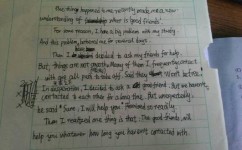 This thing happened to me recently made me a new
understanding of what is "good friends".
For some reason, I have a big problem with my
and this problem bothered me for several days.
Then I decided to ask my friends for help.
But, things are not Many of them I frequently contact
with pick to take off. Said they "Won't be free".
In desperation, I decided to ask a good friend. But we haven't
contacted to each other for a long time. But unexpectedly,
he said "Sure. I will help you" so readily.
Then I realized one thing is that: One good friends will
help you whatever how long you haven't contacted with.